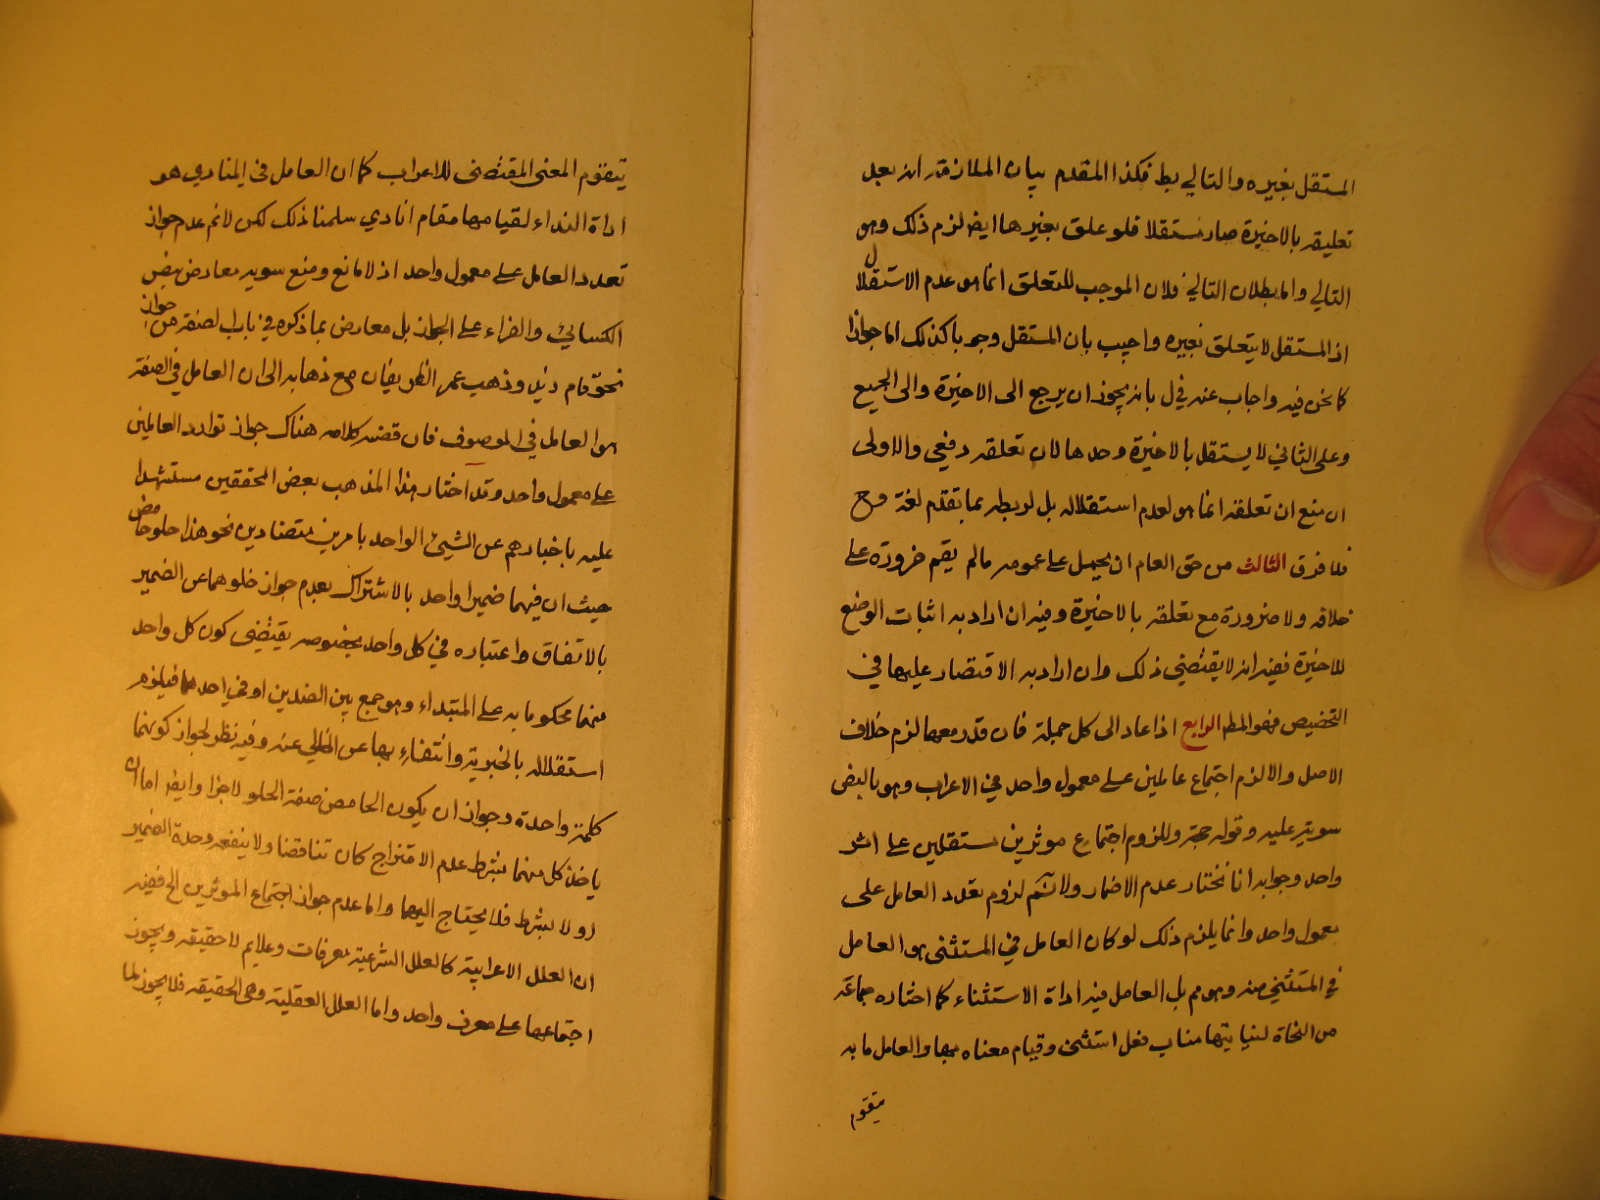 المستقل بغيره والتالي بط فكذا المقدم بيان الملازمة انه بعد
تعليقه بالاخيرة صار مستقلا فلو علق بغيرها ايضا لزم ذلك وهو
التالي واما بطلان التالي فلان الموجب للتعلق انما هو عدم الاستقلال
اذ المستقل لا يتعلق بغيره واجيب بان المستقل وجوبا كذلك اما جوازا
كما نحن فيه واجاب عنه في ل بانه يجوز ان يرجع الى الاخيرة والى الجميع
وعلى الثاني لا يستقل بالاخيرة وحدها لان تعلقه دفعي والاولى
ان منع ان تعلقه انما هو لعدم استقلاله بل لربطه بما تقدم لغة وح
فلا فرق الثالث من حق العام ان يحمل على عمومه مالم يقم ضرورة على
خلافه ولا ضرورة مع تعلقه بالاخيرة وفيه ان اراد به اثبات الوضع
للاخيرة ففيه انه لا يقتضي ذلك وان اراد به الاقتصار عليها في
التخصيص فهو المط الرابع اذا عاد الى كل جملة فان قدر معها لزم خلاف
الاصل والا لزم اجتماع عاملين على معمول واحد في الاعراب وهو بالنص
سويه عليه وقوله حجة وللزوم اجتماع موثرين مستقلين على اثر
واحد وجوابه انا نختار عدم الاضمار ولا نسلم لزوم تعدد العامل على
معمول واحد وانما يلزم ذلك لو كان العامل في المستثنى هو العامل
في المستثنى منه وهو مم بل العامل فيه اداة الاستثناء كما اختاره جماعة
من النحاة لنيابتها مناب فعل استثنى وقيام معناه بها والعامل ما به
يتقوم
يتقوم المعنى المقتضى للاعراب كما ان العامل في المنادي هو
اداة النداء لقيامها مقام انادي سلمنا ذلك لكن لا نم عدم جواز
تعدد العامل على معمول واحد اذ لا مانع ومنع سويه معارض بنص
الكسائي والفراء على الجواز بل معارض بما ذكره في باب الصفة من جواز
نحو قام زيد وذهب عمرو الظريفان مع ذهابه الى ان العامل في الصفة
هو العامل في الموصوف فان قضية كلامه هناك جواز توارد العاملين
على معمول واحد وقد اختار هذا المذهب بعض المحققين مستشهدا
عليه باخبارهم عن الشيئ الواحد بامرين متضادين نحو هذا حلو حامض
حيث ان فيهما ضميرا واحد بالاشتراك لعدم جواز خلوهما عن الضمير
بالاتفاق واعتباره في كل واحد بخصوصه يقتضي كون كل واحد
منهما محكوما به على المبتداء وهو جمع بين الضدين او في احدهما فيلزم
استقلاله بالخبرية وانتفاء بها عن الخالي عنه وفيه نظر لجواز كونهما
كلمة واحدة وجواز ان يكون الحامض صفة الحلو لا جزا وايضا اما ان
ياخذ كل منهما بشرط عدم الامتزاج كان تناقضا ولا ينفعه وحدة الضمير
او لا بشرط فلا يحتاج اليها واما عدم جواز اجتماع الموثرين الخ ففيه
ان العلل الاعرابية كالعلل الشرعية معرفات وعلايم لا حقيقة ويجوز
اجتماعها على معرف واحد واما العلل العقلية وهي الحقيقة فلا يجوز لما